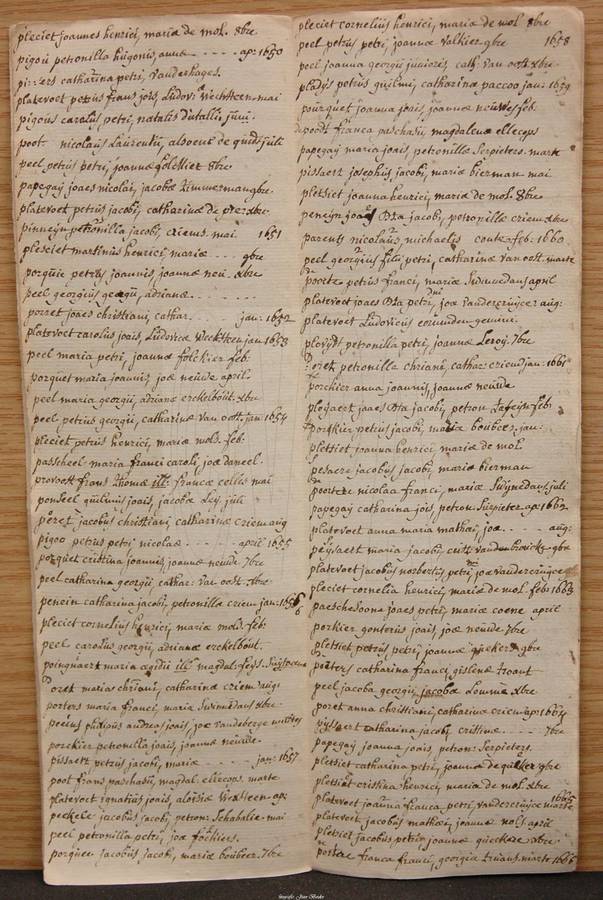 pleciet joannes henrici, mariæ de mol. 8bre
pigou petronilla hugonis, annæ - - - - - ap: 1650
catharina petri, vanderhages.
platevoet petrus frans jois, Ludov: Wechsteen - mai
pigous carolus petri, natalis Dutallis, juni.
poot. nicolaus Laurentii, de juli
peel petrus petri, joannæ 8bre
papegaij joaes nicolai, jacobæ Timmerman gbre.
platevoet petrus jacobi, catharinæ de xbre.
pinneijn petronilla jacobi, criems. mai. 1651
plesciet martinus henrici, mariæ . . . . gbre
porquie petrus joannis, joannæ neu. xbre
peel georgius georgii, adrianæ . . . . . . .
porret joaes christiani, cathar. . . . . . jan: 1652
platevoet carolus joais, Ludovicæ Weexsteen jan. 1653
peel maria petri, joannæ folckier feb:
porquet maria joannis, joæ neuwe april.
peel maria georgii, adrianæ erckelbout. xbre
peel petrus georgii, catharinæ van oost. jan: 1654
pleciet petrus henrici, mariæ mol. feb:
passcheel maria franci caroli, joæ daneel.
provoost frans thomæ ill: francæ celles mai
ponseel guilmus joais, jacobæ Leij. juli
peret jacobus christiani, catharinæ criem aug
pigoo petrus petri nicolae . - . . . - april 1655
porquet cristina joannis, joannæ neuwe 7bre
peel catharina georgii, cathar: van oost. xbre
penein catharina jacobi, petronillæ criem jan: 1656
pleciet cornelius henrici, mariæ mol. feb
peel carolus georgii, adrianæ erckelbout.
poingnaert maria ægidii ill: magdal:
poret maria chriani, catharinæ criem aug:
porters maria franci, maria Swinnedaus xbre
peeus philipus andreas joais, joæ vandeberge
porckier petronella joais, joannæ neuwe.
pissaers petrus jacobi, mariæ . . . . . jan: 1657
poot frans paschasii, magdal. ellecops. marte
platevoet ignatius joais, aloisiæ Wexsteen - ap
peckele jacobus jacobi, petron: Schabalie. mai
peel petronilla petri, joæ folckiers.
porquier jacobus jacobi, mariæ boubeer. 7bre
pleciet cornelius henrici, mariæ de mol 8bre
peel petrus petri, joannæ valkier gbre 1658
peel joanna georgii junioris, cath: van oost xbre
pladijs petrus guilmi, catharina paccoo jan: 1659
pourquet joanna joais, joannæ neuwe feb.
poodt franca paschasii, magdalena ellecops
papegaij maria joais, petronillæ Serpieters. marte
pissaerz josephus jacobi, mariæ bierman - mai
pletsiet joanna henrici, mariæ de mol. 8bre
peneijn joaes Bta jacobi, petronillæ criem xbre
parents nicolaus michaelis conte. feb. 1660
peel georgius filii petri, catharinæ van oost. marte
poorte petrus franci, mariæ Swinnedaus april
platevoet joaes Bta petri, joæ vandercruijce aug:
platevoet Ludovicus gemini.
ploijdt petronilla petri, joannæ Leroij. 7bre
poret petronilla chriani, cathar: criem jan: 1661
porckier anna joannis, joannæ neuwe
ploijaert joaes Bta jacobi, petron. feb:
porkier petrus jacobi, mariæ boubees. jan:
pletsiet joanna henrici, mariæ de mol.
pesaerz jacobus jacobi, mariæ bierman
poorter nicolaa franci, mariæ Swijnedaus. juli
papegaij catharina jois, petron: Surpieter ap: 1662
platevoet anna maria mathæi, joæ. . . . . aug:
peijsaert maria jacobi, gbre
platevoet jacobus norbertus, petri, joæ vandercruijce
pleciet cornelia henrici, mariæ de mol. feb: 1663
paeschesoone joaes petri, mariæ coene april
porkier gonterus joais, joæ neuwe 7bre
pletsiet petrus petri, joannæ gbre
porters catharina franci, gislenæ troant
peel jacoba georgii, jacobæ Lounis xbre
poret anna christiani, catharinæ criem ap: 1664
pijssaert catharina jacobi, cristinæ . . . - 7bre
papegaij joanna joais, petron: Serpieters.
pletsiet catharina petri, joannæ de gbre
pletsiet cristina henrici, mariæ de mol. xbre
platevoet joanna franca petri, vandercruijce marte 1665
platevoet jacobus mathæi, joannæ nols. april
pletsiet jacobus petri, joannæ queckere xbre
portere franca franci, georgia truans. marte 1666